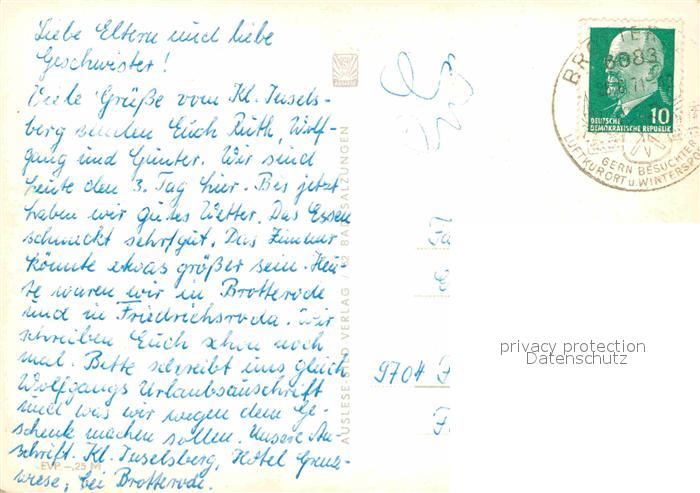 Liebe Eltern und liebe
Geschwister!
Viele Grüße vom Kl. Insels-
berg senden Euch Ruth, Wolf-
gang und Günter. Wir sind
heute den 3. Tag hier. Bis jetzt
haben wir gutes Wetter. Das Essen
schmeckt sehr gut. Das Zimmer
könnte etwas größer sein. Heu-
te waren wir in Brotterode
und in Friedrichroda. Wir
schreiben Euch schon noch
mal. Bitte schreibt uns gleich
Wolfgangs Urlaubsanschrift
und was wir wegen dem Ge-
schenk machen sollen. Unsere An-
schrift. Kl. Inselsberg, Hotel Grenz-
wiese, bei Brotterode.
EVP -,25 M
AUSLESE-BILD VERLAG / 62 BAD SALZUNGEN
6083
DEUTSCHE
DEMOKRATISCHE REPUBLIK
10
GERN BESUCHTER
LUFTKURORT u. WINTERS
9704
privacy protection
Datenschutz